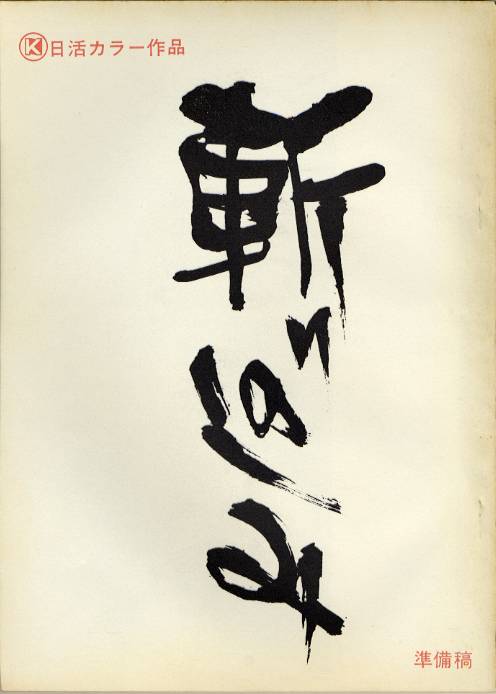 Ⓚ日活カラー作品
斬り込み
準備稿